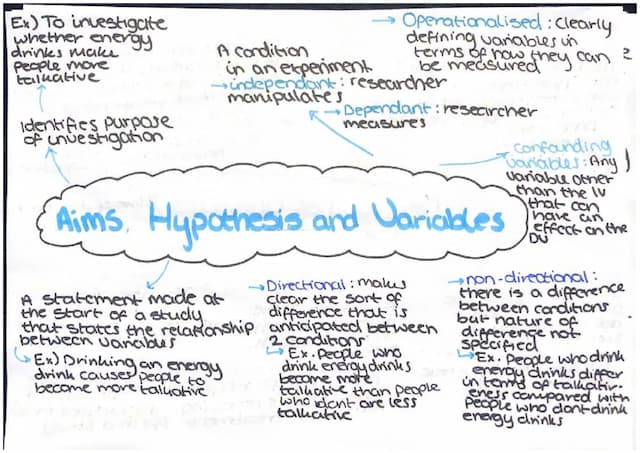 Ex) To investigate
whether energy
drinks make
people more
talkative
Identifies purpose
of investigation
A condition
in an experiment
→independant: researcher
manipulates
→Dependant: researcher
measures
→ Operationalised: clearly
defining variables in
terms of how they can
be measured
confounding
variables: Any
variable other
than the IV
that can
have an
effect on the
DV
Aims, Hypothesis and Variables
A statement made at
the start of a study
that states the relationship
between variables
Ex) Drinking an energy
drink causes people to
become more talkative
→Directional: makes
clear the sort of
difference that is
anticipated between
2 conditions
Ex. People who
drink energy drinks
become more
talkative than people
who dont are less
talkative
→non-directional:
there is a difference
between conditions
but nature of
difference not
specified
Ex. People who drink
energy drinks differ
in terms of talkativ-
eness compared with
people who dont drink
energy drinks